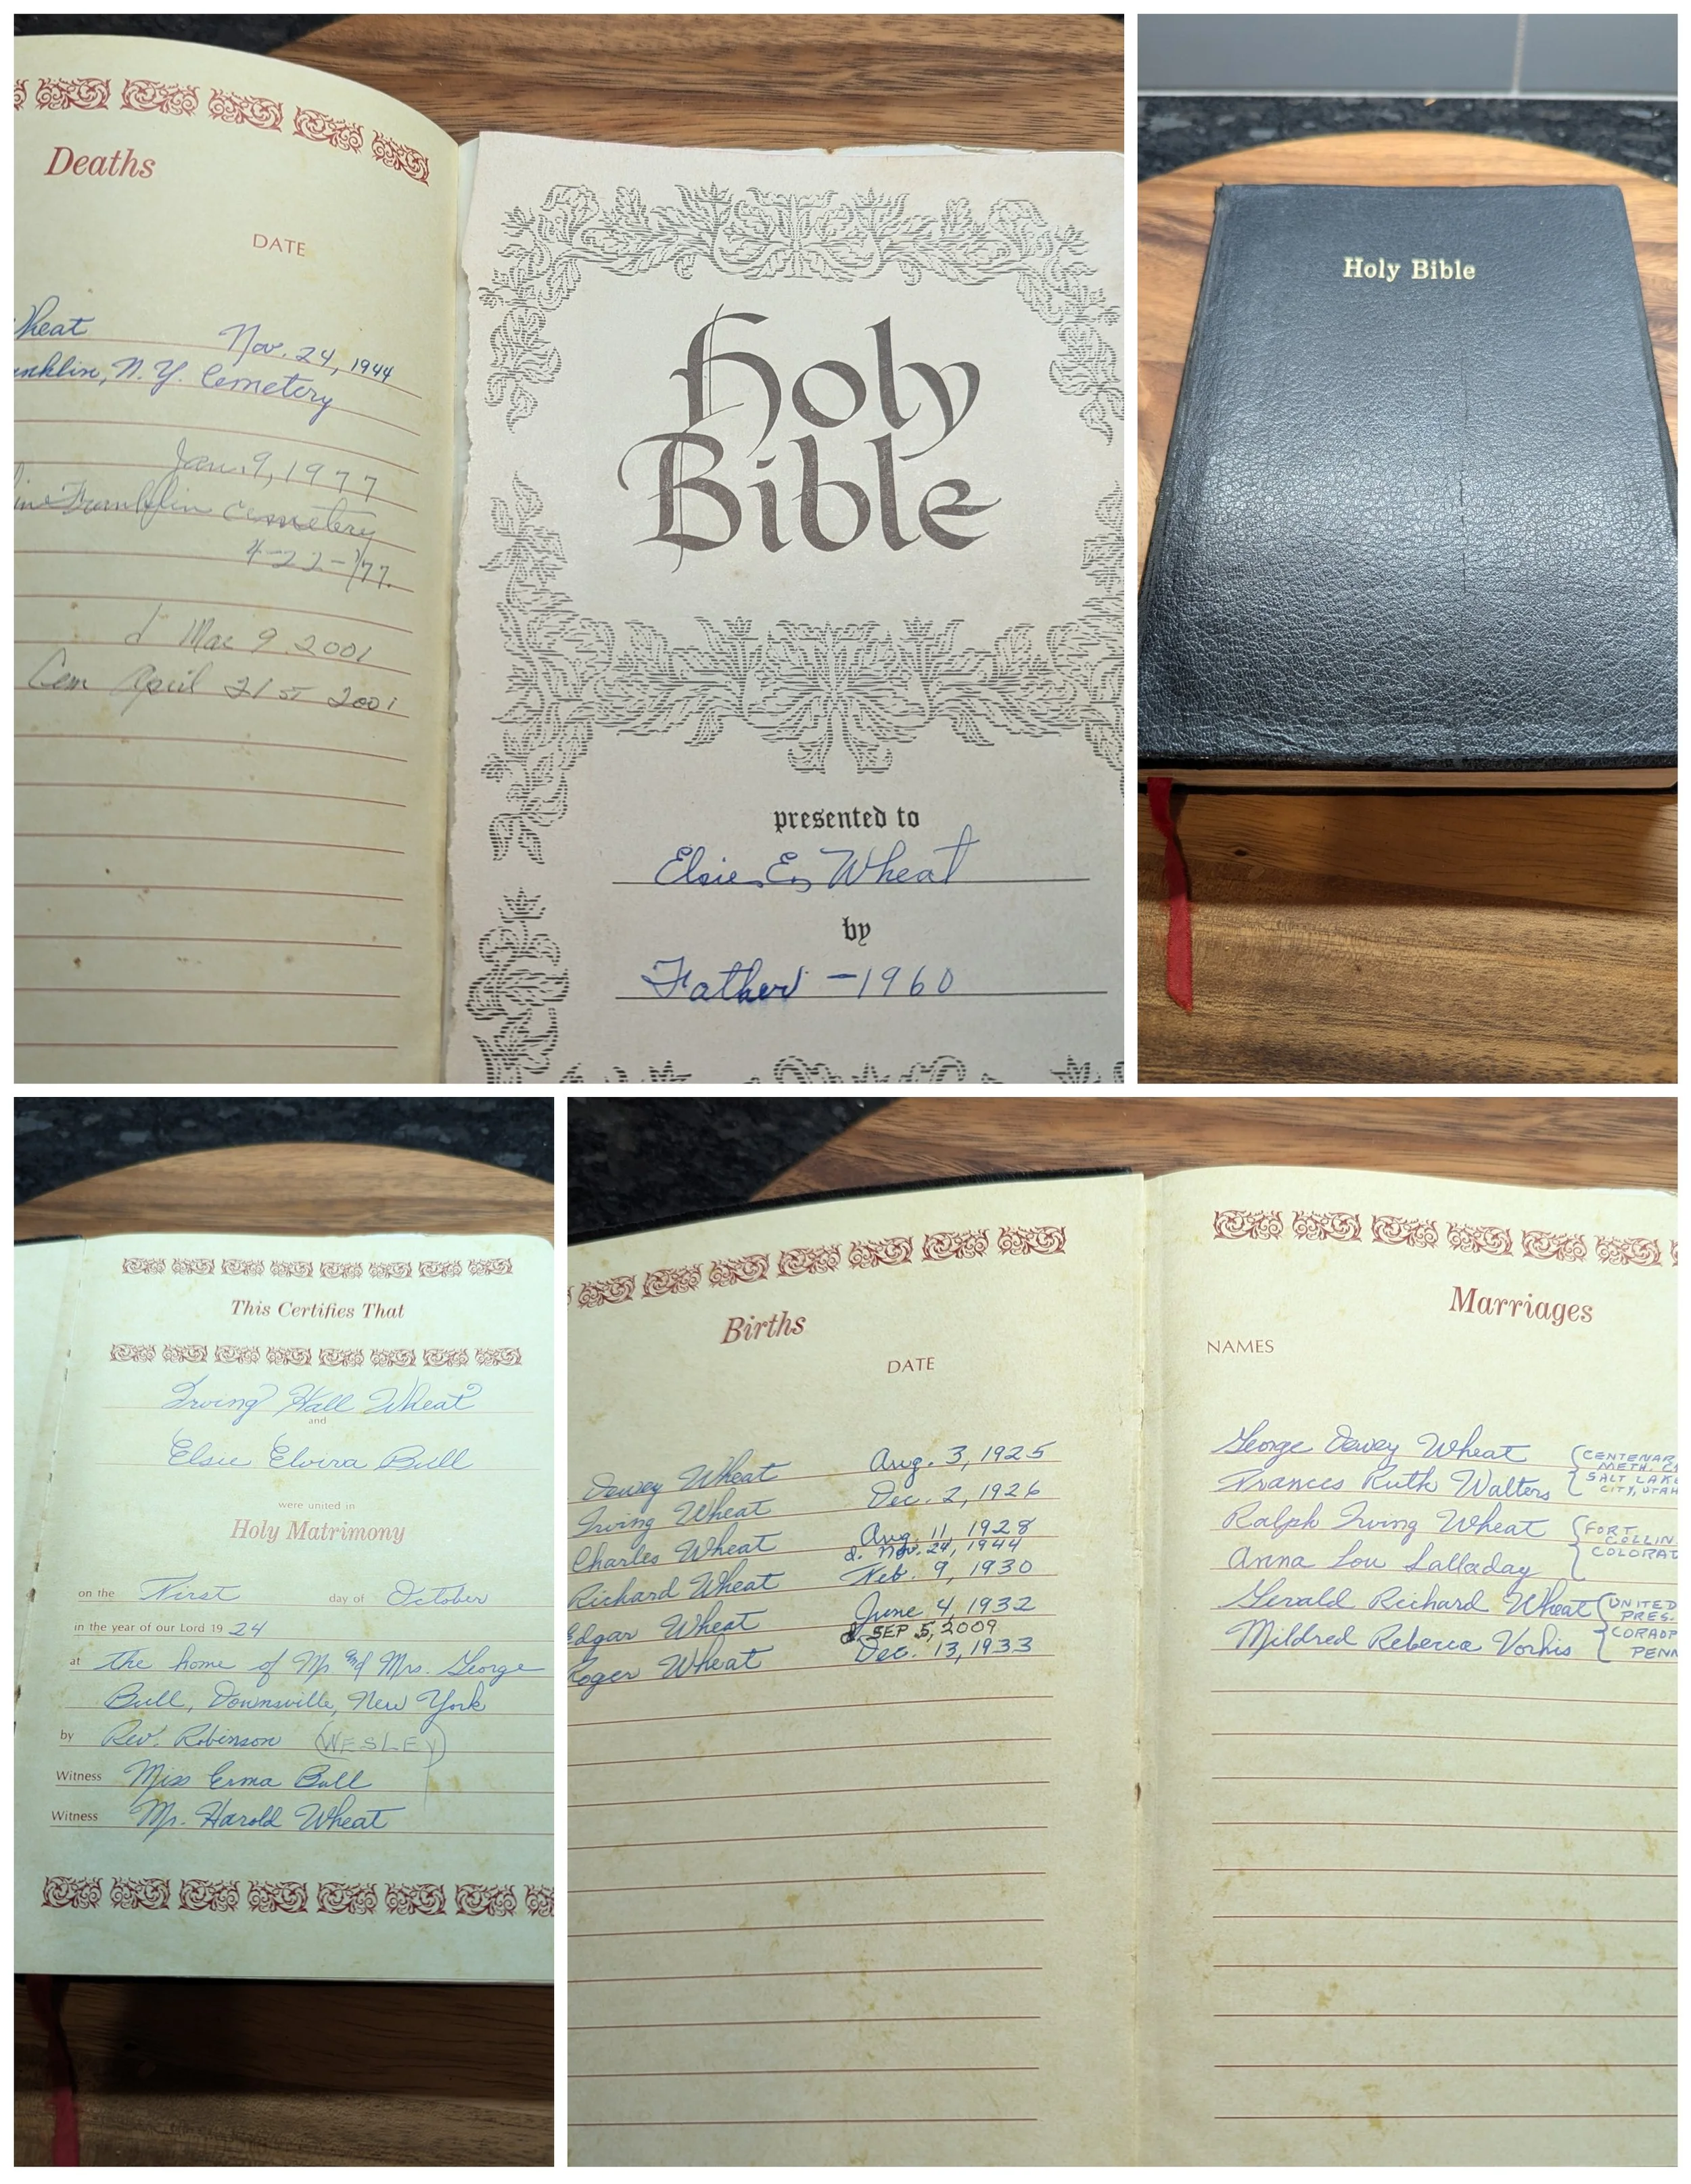 Deaths
DATE
Wheat Nov. 24, 1944
anklin, N.Y. Cemetery
Jan. 9, 1977
Franklin Cemetery
4-22-77.
d Mar 9 2001
Cem April 21ST 2001
Holy
Bible
presented to
Elsie E. Wheat
by
Father -1960
Holy Bible
This Certifies That
Irving Hall Wheat
and
Elsie Elvira Bull
were united in
Holy Matrimony
on the First day of October
in the year of our Lord 19 24
at the home of Mr and Mrs. George
Bull, Downsville, New York
by Rev. Robinson (WESLEY)
Witness Miss Erma Bull
Witness Mr. Harold Wheat
Births
DATE
Dewey Wheat Aug. 3, 1925
Irving Wheat Dec. 2, 1926
Charles Wheat Aug. 11, 1928
d. Nov. 24, 1944
Richard Wheat Feb. 9, 1930
Edgar Wheat June 4, 1932
d. SEP 5, 2009
Roger Wheat Dec. 13, 1933
Marriages
NAMES
George Dewey Wheat (CENTENAR
METH. C
Frances Ruth Walters SALT LAKE
CITY, UTAH
Ralph Irving Wheat (FORT
COLLIN
Anna Lou Salladay COLORAD
Gerald Richard Wheat (UNITED
PRES.
Mildred Rebecca Vorhis CORAOP
PENN